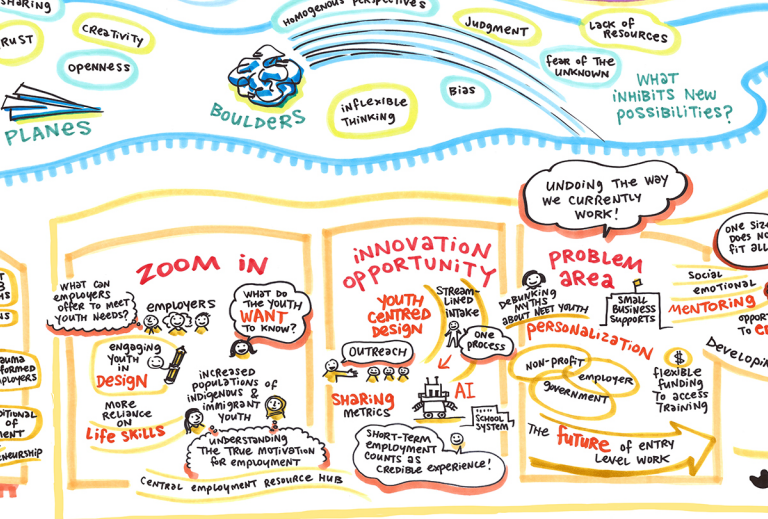 SHARING
TRUST
CREATIVITY
OPENNESS
PLANES
HOMOGENOUS PERSPECTIVES
JUDGMENT
LACK OF
RESOURCES
FEAR OF THE
UNKNOWN
BOULDERS
INFLEXIBLE
THINKING
BIAS
WHAT
INHIBITS NEW
POSSIBILITIES?
UNDOING THE WAY
WE CURRENTLY
WORK!
ZOOM IN
WHAT CAN
EMPLOYERS
OFFER TO MEET
YOUTH NEEDS?
EMPLOYERS
WHAT DO
THE YOUTH
WANT
TO KNOW?
ENGAGING
YOUTH
IN
DESIGN
MORE
RELIANCE
ON
LIFE SKILLS
INCREASED
POPULATIONS OF
INDIGENOUS &
IMMIGRANT
YOUTH
UNDERSTANDING
THE TRUE MOTIVATION
FOR EMPLOYMENT
CENTRAL EMPLOYMENT RESOURCE HUB
INNOVATION
OPPORTUNITY
YOUTH
CENTRED
DESIGN
STREAM-
LINED
INTAKE
ONE
PROCESS
OUTREACH
SHARING
METRICS
AI
SCHOOL
SYSTEM
SHORT-TERM
EMPLOYMENT
COUNTS AS
CREDIBLE EXPERIENCE!
PROBLEM
AREA
DEBUNKING
MYTHS
ABOUT NEET YOUTH
SMALL
BUSINESS
SUPPORTS
PERSONALIZATION
NON-PROFIT
EMPLOYER
GOVERNMENT
$
FLEXIBLE
FUNDING
TO ACCESS
TRAINING
THE FUTURE OF ENTRY
LEVEL WORK
ONE SIZE
DOES NO
FIT ALL
SOCIAL
EMOTIONAL
MENTORING
OPPORT
TO E
DEVELOPIN
AUMA
FORMED
PLOYERS
DITIONAL
OF
MENT
NEURSHIP